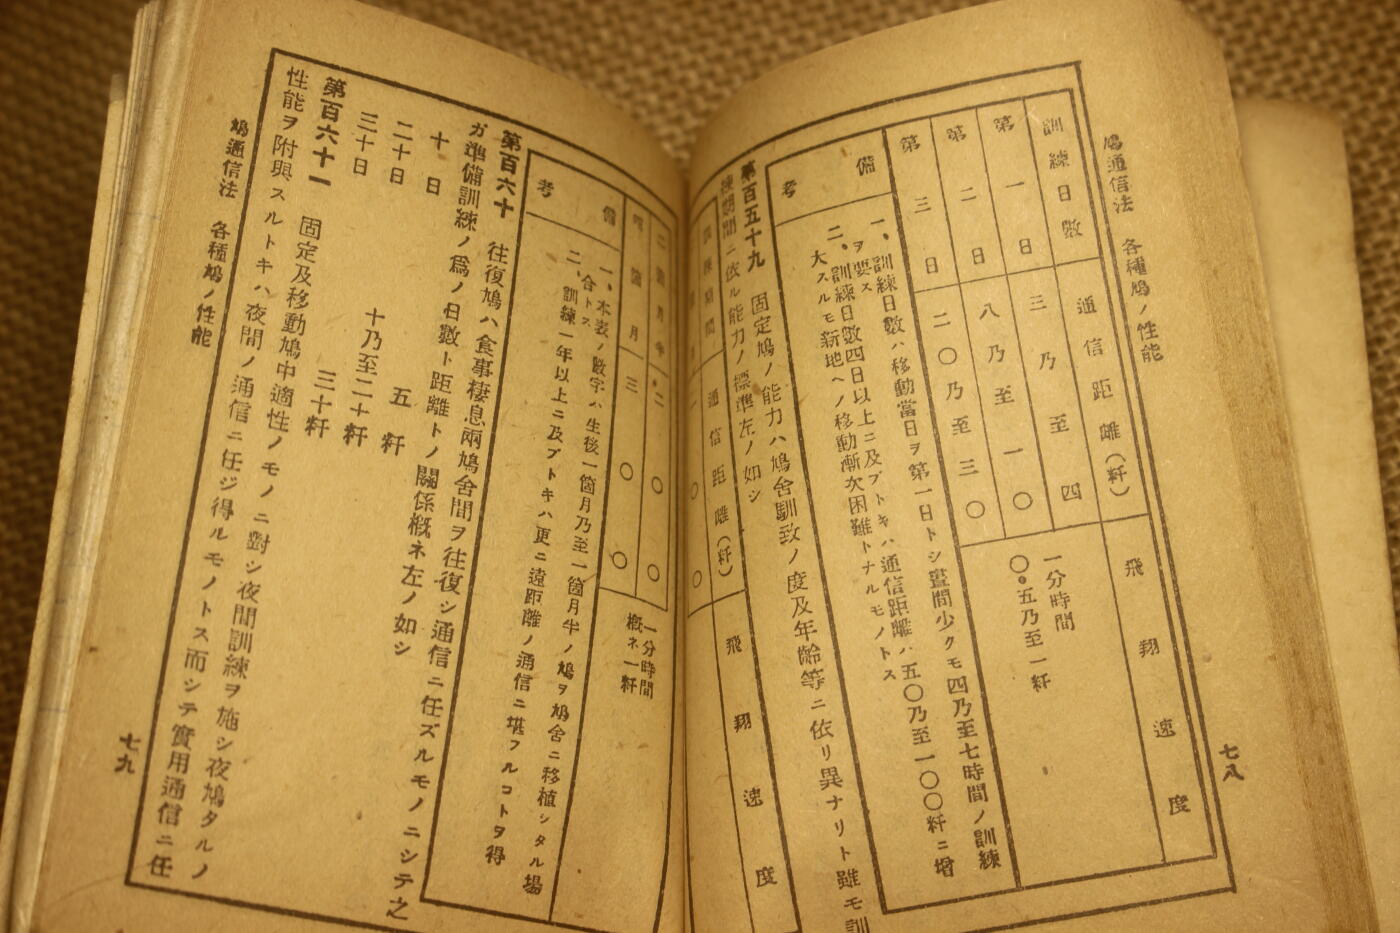 鳩通信法　各種鳩ノ性能
七八
訓練日數　通信距離（粁）　飛翔速度
第一日　三乃至四　一分時間
〇・五乃至一粁
第二日　八乃至一〇
第三日　二〇乃至三〇
備考
一、訓練日數ハ移動當日ヲ第一日トシ晝間少クモ四乃至七時間ノ訓練
ヲ要ス
二、訓練日數四日以上ニ及ブトキハ通信距離ハ五〇乃至一〇〇粁ニ增
大スルモ新地ヘノ移動漸次困難トナルモノトス
第百五十九　固定鳩ノ能力ハ鳩舍馴致ノ度及年齡等ニ依リ異ナリト雖モ訓
練期間ニ依ル能力ノ標準左ノ如シ
訓練期間　通信距離（粁）　飛翔速度
一〇〇
二箇月半　二〇〇　一分時間
概ネ一粁
月　三〇〇
備考
一、本表ノ數字ハ生後一箇月乃至一箇月半ノ鳩ヲ鳩舍ニ移植シタル場
合トス
二、訓練一年以上ニ及ブトキハ更ニ遠距離ノ通信ニ堪フルコトヲ得
第百六十　往復鳩ハ食事棲息兩鳩舍間ヲ往復シ通信ニ任ズルモノニシテ之
ガ準備訓練ノ爲ノ日數ト距離トノ關係概ネ左ノ如シ
十日　五粁
二十日　十乃至二十粁
三十日　三十粁
第百六十一　固定及移動鳩中適性ノモノニ對シ夜間訓練ヲ施シ夜鳩タルノ
性能ヲ附與スルトキハ夜間ノ通信ニ任ジ得ルモノトス而シテ實用通信ニ任
鳩通信法　各種鳩ノ性能
七九